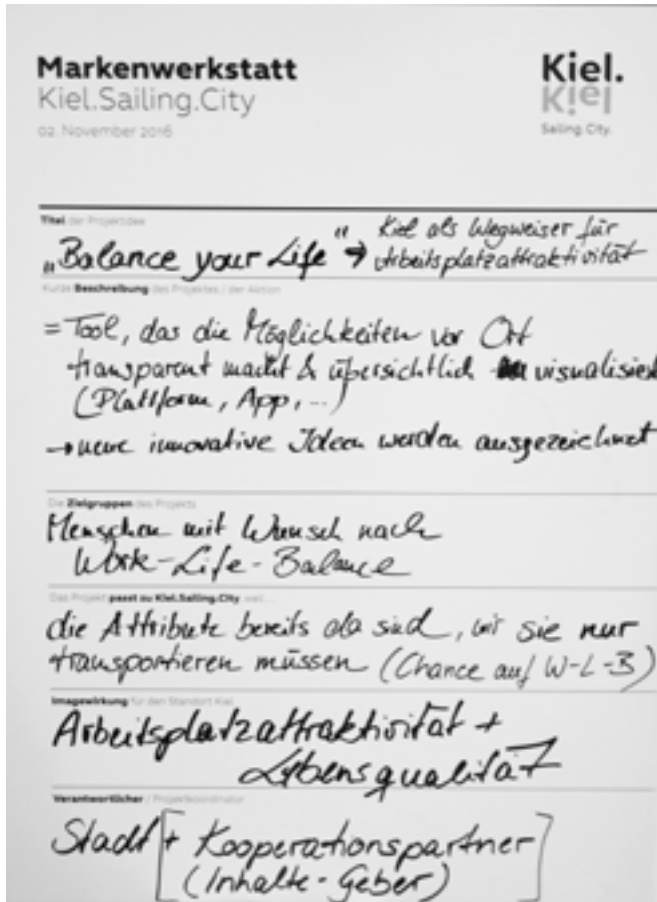 Markenwerkstatt
Kiel.Sailing.City
02. November 2016
Kiel.
Kiel
Sailing.City.
Titel der Projektidee
„Balance your Life" → Kiel als Wegweiser für
Arbeitsplatzattraktivität
Kurze Beschreibung des Projektes / der Aktion
= Tool, das die Möglichkeiten vor Ort
transparent macht & übersichtlich visualisiert
(Plattform, App, ...)
→ neue innovative Ideen werden ausgezeichnet
Die Zielgruppen des Projekts
Menschen mit Wunsch nach
Work-Life-Balance
Das Projekt passt zu Kiel.Sailing.City weil...
die Attribute bereits da sind, wir sie nur
transportieren müssen (Chance auf W-L-B)
Imagewirkung für den Standort Kiel
Arbeitsplatzattraktivität +
Lebensqualität
Verantwortlicher / Projektkoordinator
Stadt [+ Kooperationspartner
(Inhalte-Geber)]